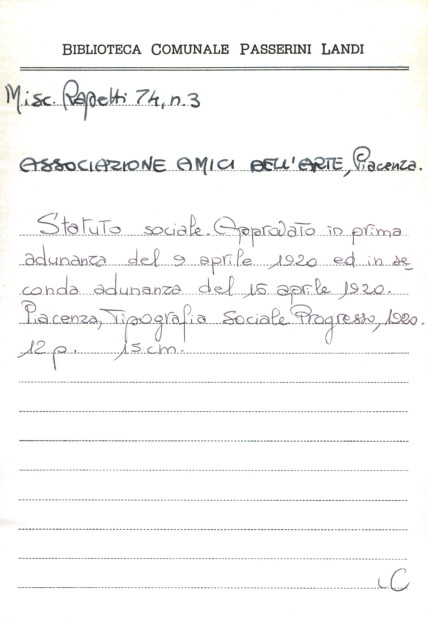 BIBLIOTECA COMUNALE PASSERINI LANDI
Misc. Rapetti 74, n. 3
ASSOCIAZIONE AMICI DELL'ARTE, Piacenza.
Statuto sociale. Approvato in prima
adunanza del 9 aprile 1920 ed in se
conda adunanza del 16 aprile 1920.
Piacenza, Tipografia Sociale Progresso, 1920.
12 p. 15 cm.